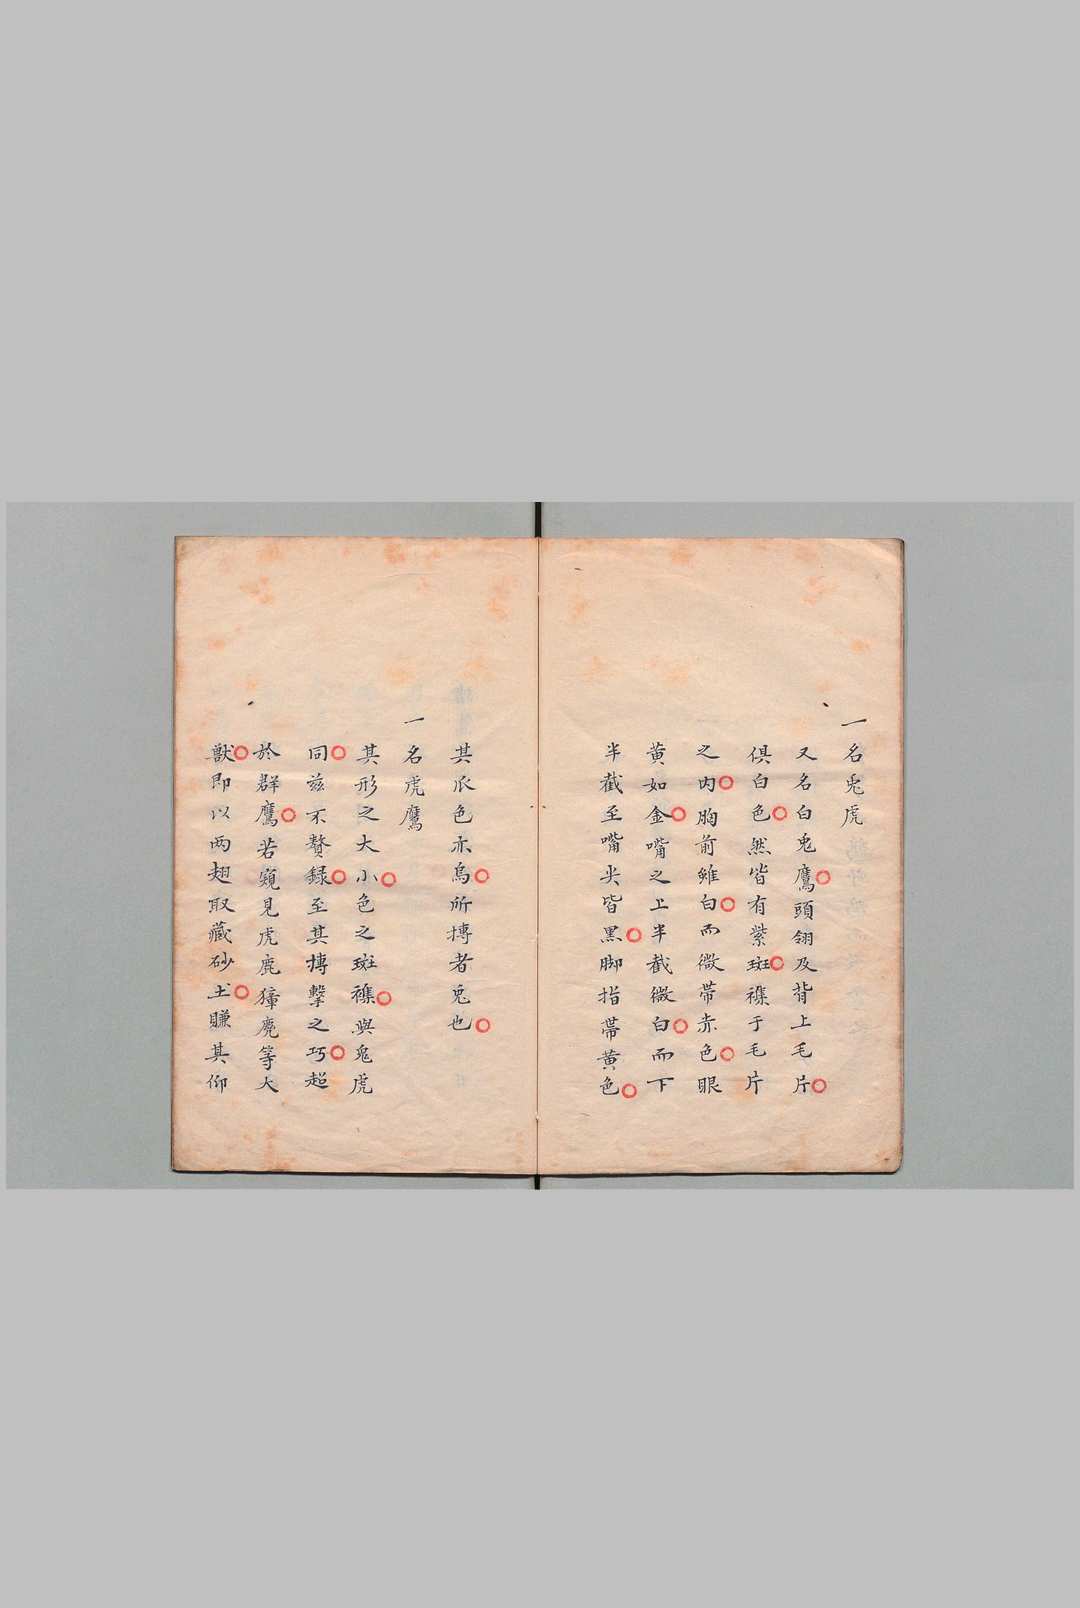 一名兎虎
又名白兎鷹頭翎及背上毛片
俱白色然皆有紫斑襍于毛片
之内胸前雖白而微帯赤色眼
黄如金嘴之上半截微白而下
半截至嘴尖皆黒脚指帯黄色
其爪色亦烏所摶者兎也
一名虎鷹
其形之大小色之斑襍與兎虎
同茲不贅録至其摶撃之巧超
於群鷹若窺見虎鹿獐麂等大
獸即以両翅取藏砂土賺其仰